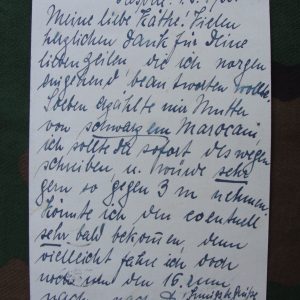 Meine liebe Käthe! Vielen
herzlichen Dank für Deine
lieben Zeilen die ich morgen
eingehend beantworten wollte.
Soeben erzählte mir Mutter
von schwarzem Marocain
ich sollte da sofort deswegen
schreiben, u. würde sehr
gern so gegen 3 m nehmen.
Könnte ich den eventuell
sehr bald bekommen, denn
vielleicht fahre ich doch
noch um den 16. Juni
nach